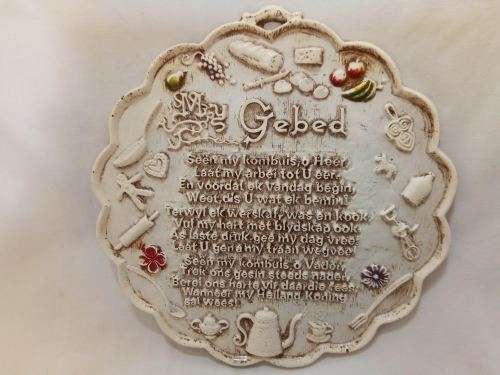 My Gebed
Seën my kombuis, o Heer
Laat my arbei tot U eer.
En voordat ek vandag begin,
Weet, dis U wat ek bemin!
Terwyl ek werskaf, was en kook,
Vul my hart met blydskap ook.
As laste druk gee my dag vree
Laat U gena my traan wegvee.
Seën my kombuis, o Vader,
Trek ons gesin steeds nader,
Berei ons harte vir daardie fees
Wanneer my Heiland Koning
sal wees!